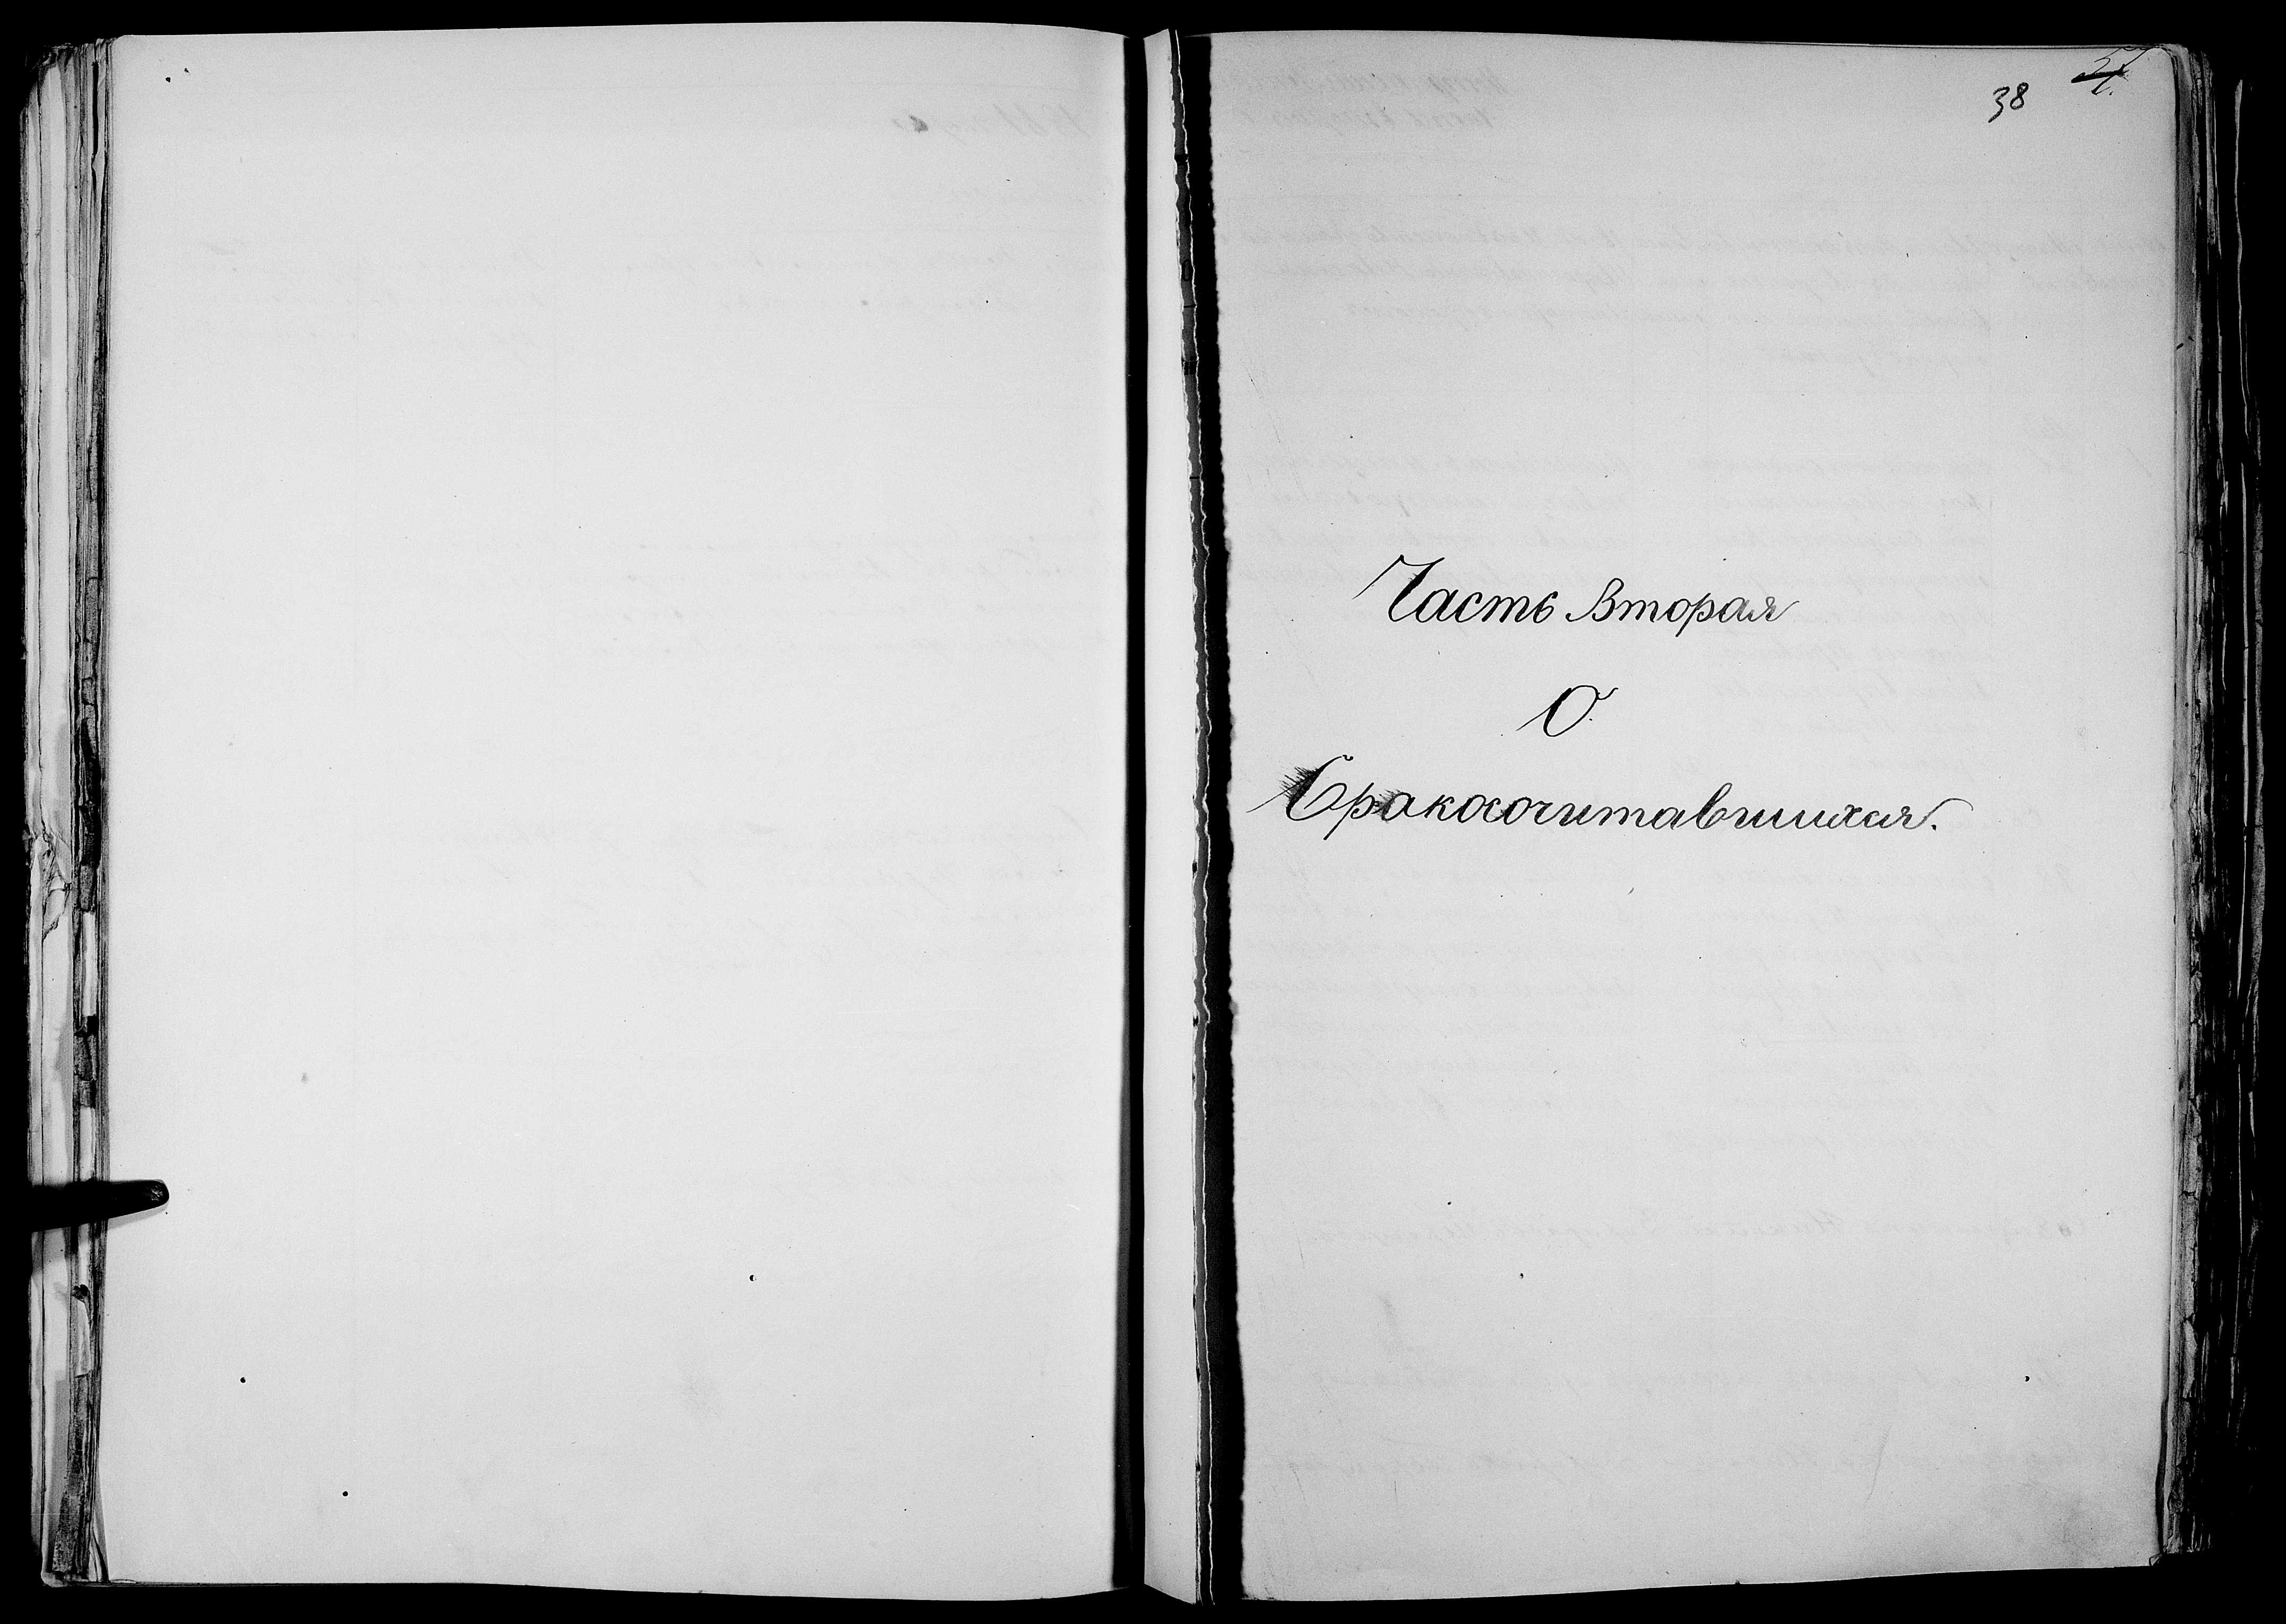 38
Часть Вторая
О.
Бракосочитавшихся.